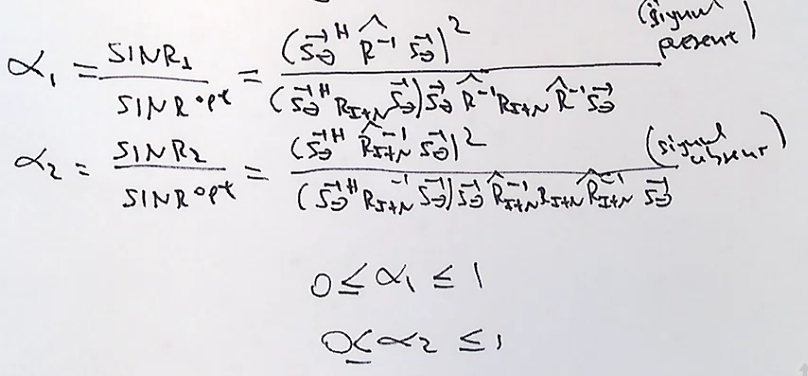 α₁ = SINR₁ / SINR^opt = (S⃗_Θ^H R̂⁻¹ S⃗_Θ)² / (S⃗_Θ^H R_{I+N} S⃗_Θ) S⃗_Θ R̂⁻¹ R_{I+N} R̂⁻¹ S⃗_Θ (signal present)
α₂ = SINR₂ / SINR^opt = (S⃗_Θ^H R̂_{I+N}⁻¹ S⃗_Θ)² / (S⃗_Θ^H R_{I+N}⁻¹ S⃗_Θ) S⃗_Θ R̂_{I+N}⁻¹ R_{I+N} R̂_{I+N}⁻¹ S⃗_Θ (signal absent)
0 ≤ α₁ ≤ 1
0 ≤ α₂ ≤ 1